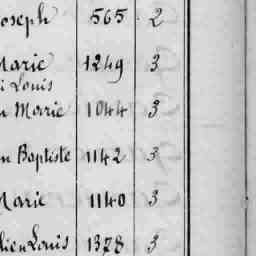 Joseph 565 2
Marie 1249 3
i Louis
n Marie 1044 3
n Baptiste 1142 3
Marie 1140 3
lien Louis 1378 3